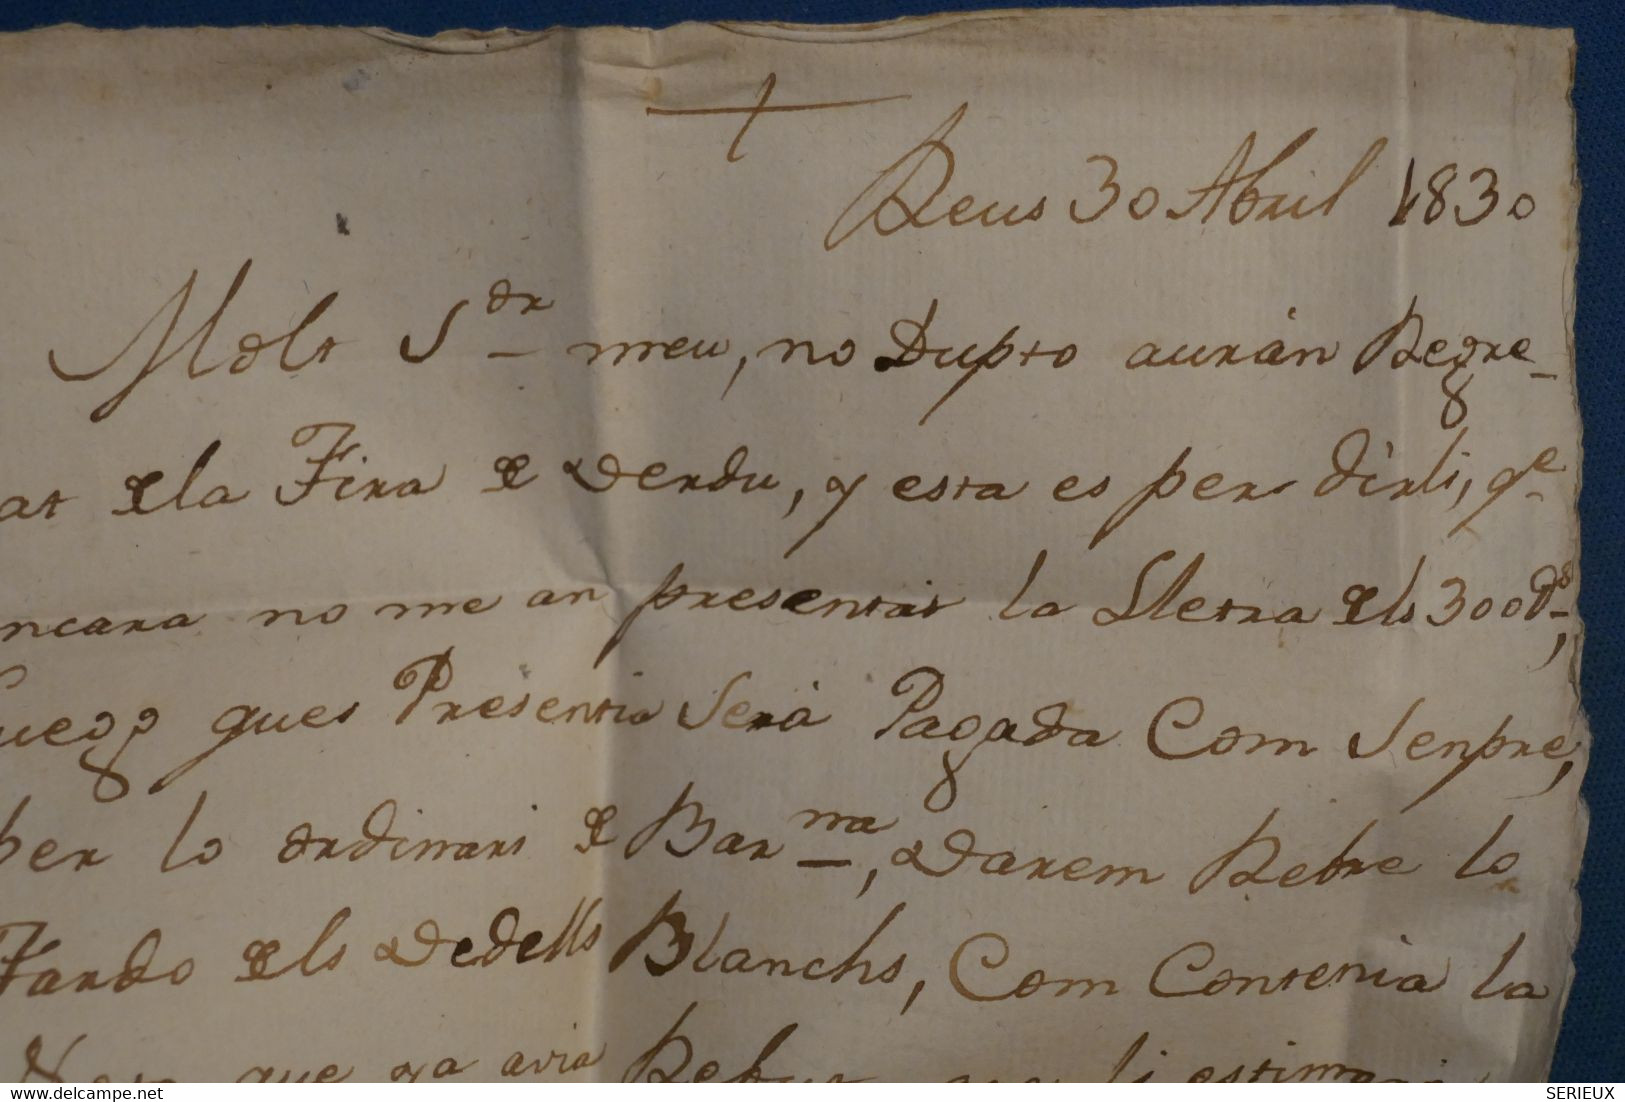 Reus 30 Abril 1830
Molt Sor meu, no Dupto aurán Regre-
at dela Fira de Verdu, y esta es per dirli, qe
ncara no me an presentat la Lletra dels 300 ds,
luego ques Presentia Será Pagada Com Senpre,
per lo ordinari de Barna, Darem Rebre lo
Fardo dels Dedells Blanchs, Com Contenia la
que ya avia Rebut, que li estimaré
SERIEUX